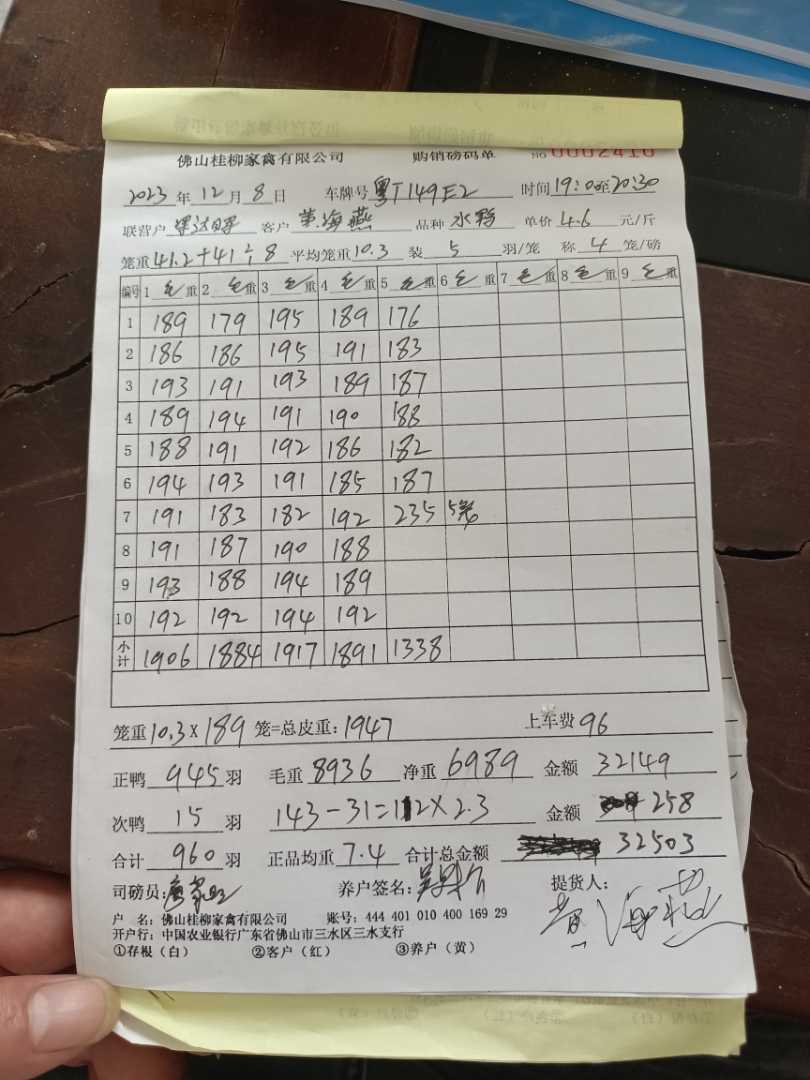 佛山桂柳家禽有限公司 购销磅码单 NO 0002410
2023 年 12 月 8 日 车牌号 粤T149E2 时间 19:0至20:30
联营户 客户 黄海燕 品种 水鸭 单价 4.6 元/斤
笼重 41.2+41÷8 平均笼重 10.3 装 5 羽/笼 称 4 笼/磅
编号 1 毛重 2 毛重 3 毛重 4 毛重 5 毛重 6 毛重 7 毛重 8 毛重 9 毛重
1 189 179 195 189 176
2 186 186 195 191 183
3 193 191 193 189 187
4 189 194 191 190 188
5 188 191 192 186 182
6 194 193 191 185 187
7 191 183 182 192 235 5笼
8 191 187 190 188
9 193 188 194 189
10 192 192 194 192
小计 1906 1884 1917 1891 1338
笼重 10.3 x 189 笼=总皮重: 1947 上车费 96
正鸭 945 羽 毛重 8936 净重 6989 金额 32149
次鸭 15 羽 143-31=112×2.3 金额 258
合计 960 羽 正品均重 7.4 合计总金额 32503
司磅员: 养户签名: 提货人:
黄海燕
户 名: 佛山桂柳家禽有限公司 账号: 444 401 010 400 169 29
开户行: 中国农业银行广东省佛山市三水区三水支行
①存根（白） ②客户（红） ③养户（黄）